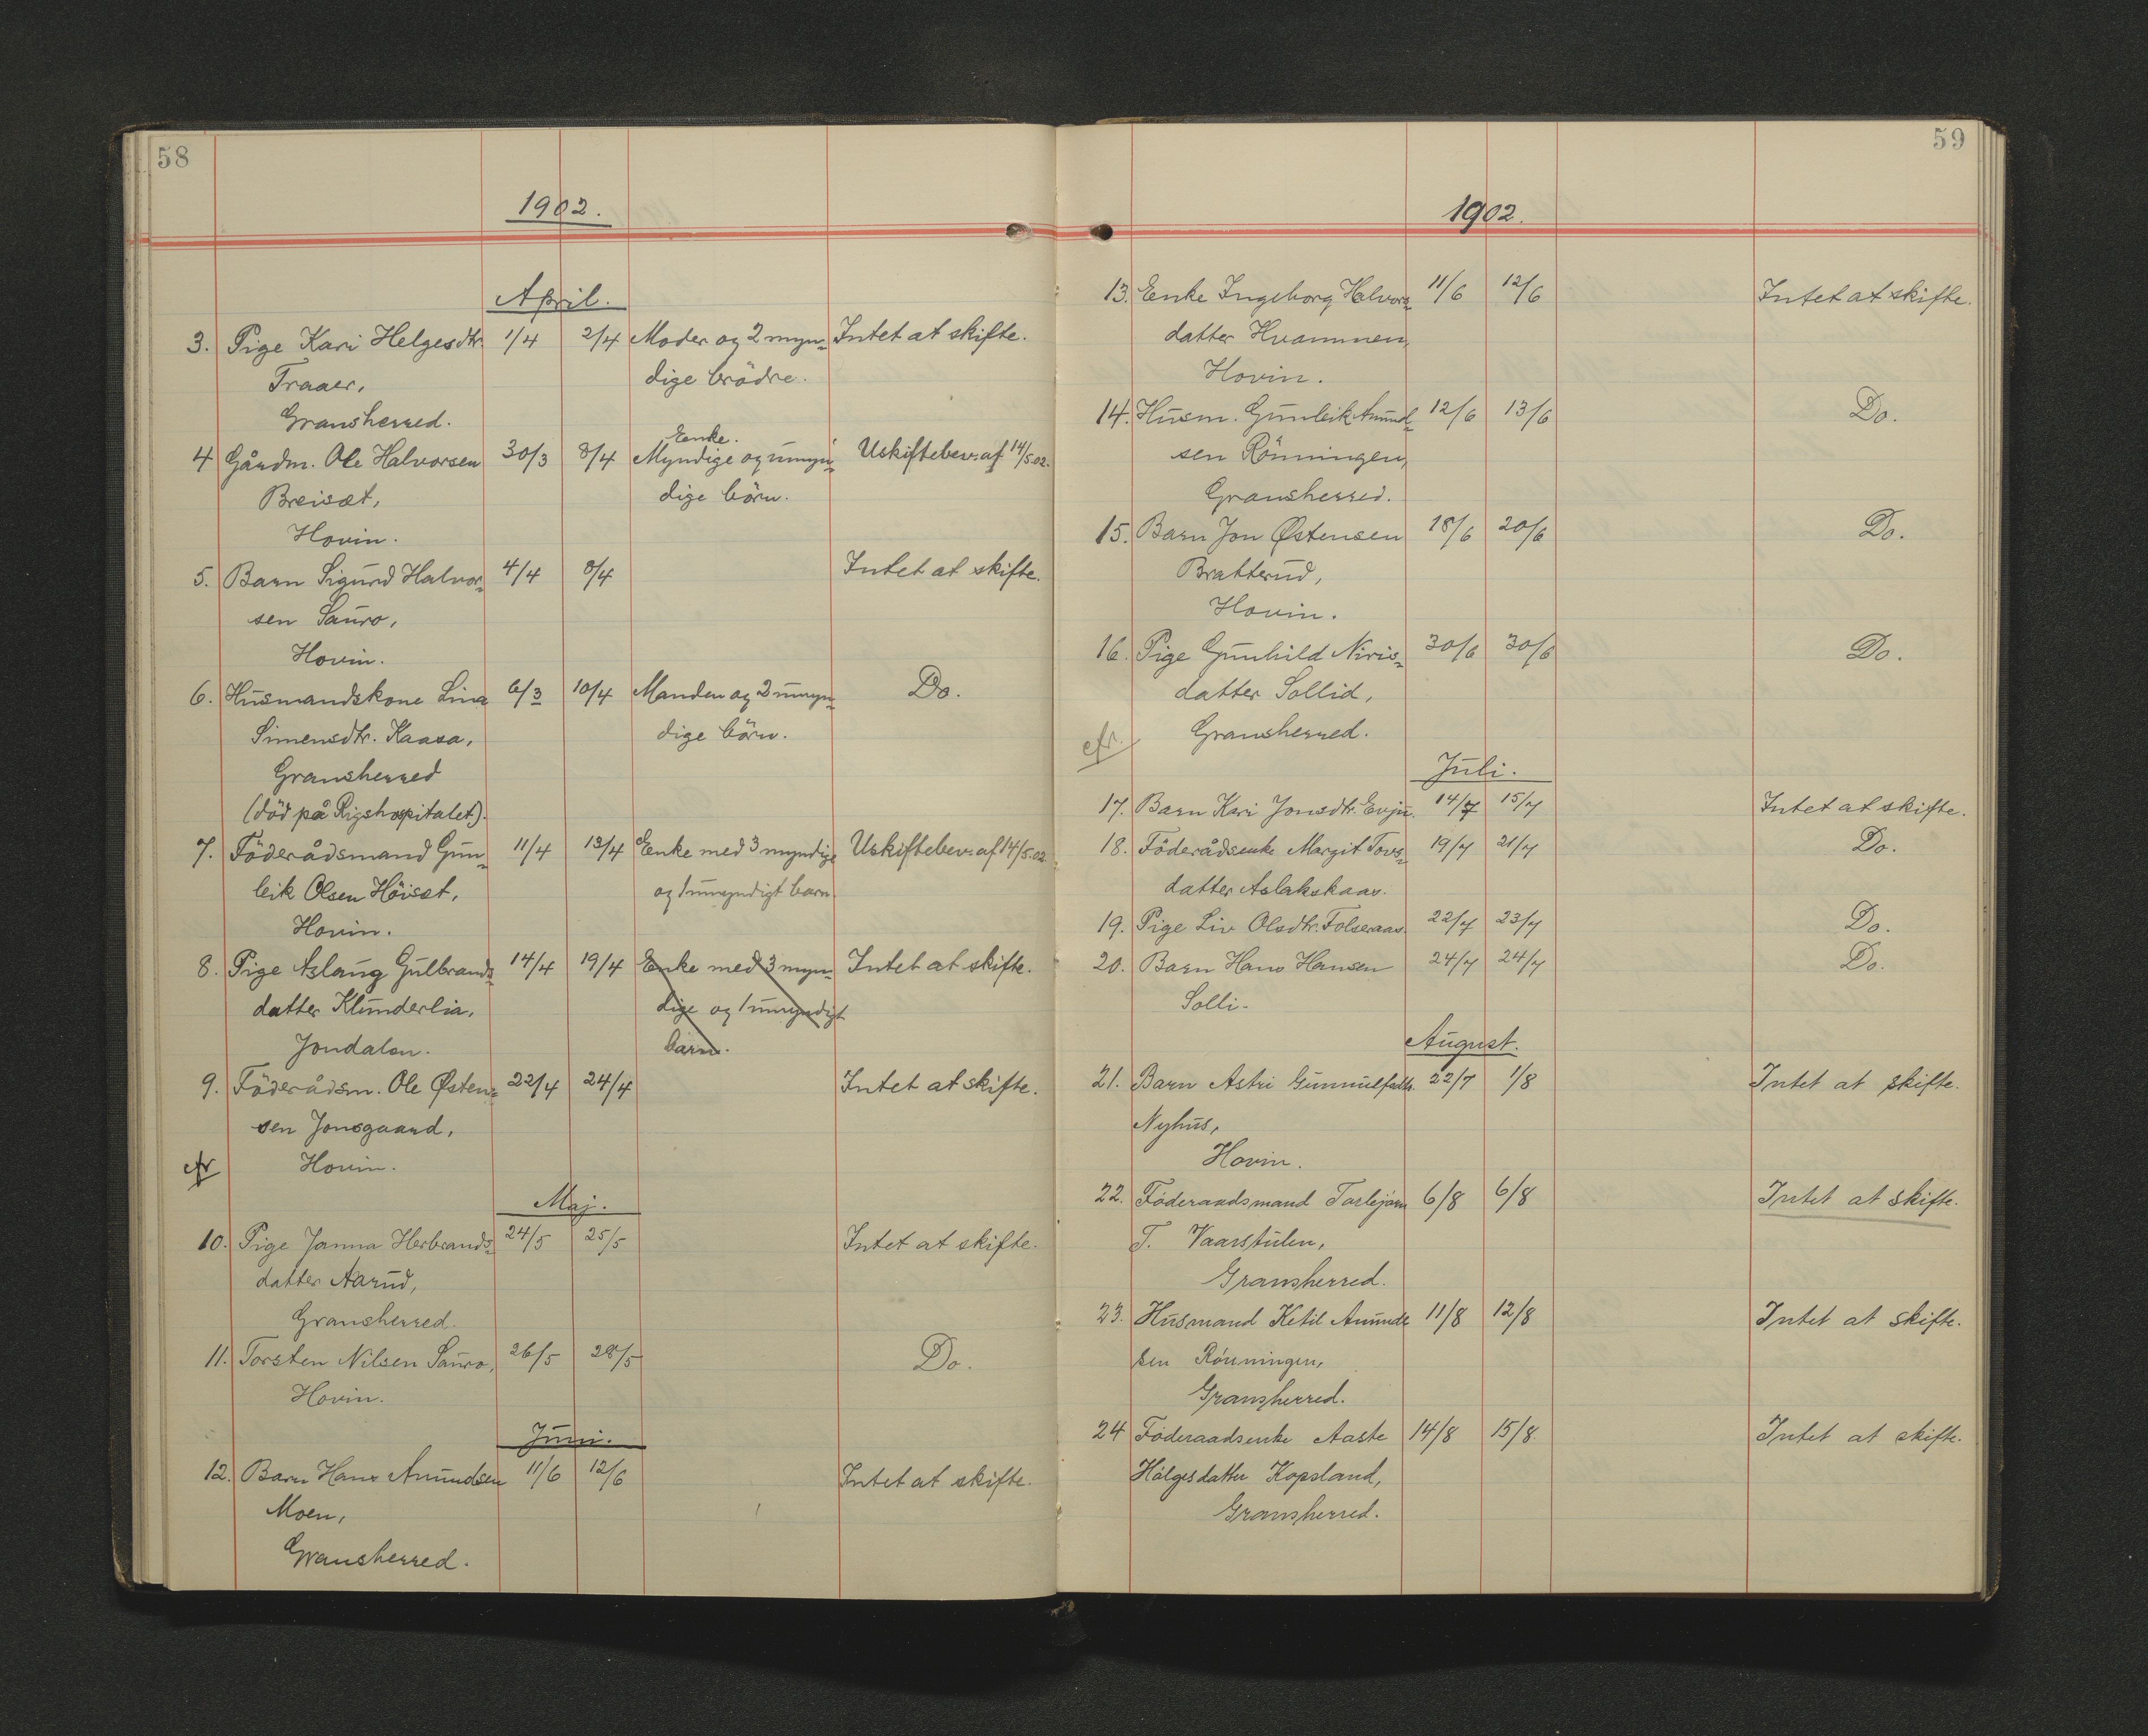 58
1902.
April.
3. Pige Kari Helgesdtr. 1/4 2/4 Moder og 2 myn= Intet at skifte.
Traaer, dige brödre.
Gransherred.
Enke.
4 Gårdm. Ole Halvorsen 30/3 8/4 Myndige og umyn= Uskiftebev. af 14/5.02.
Breiset, dige börn.
Hovin.
5. Barn Sigurd Halvor= 4/4 8/4 Intet at skifte.
sen Sauro,
Hovin.
6. Husmandskone Lina 6/3 10/4 Manden og 2 umyn= Do.
Simensdtr. Kaasa, dige börn.
Gransherred
(död på Rigshospitalet).
7. Föderådsmand Gun= 11/4 13/4 Enke med 3 myndige Uskiftebev. af 14/5.02
leik Olsen Höiset, og 1 umyndigt barn.
Hovin.
8. Pige Aslaug Gulbrands= 14/4 19/4 Enke med 3 myn= Intet at skifte.
datter Klunderlia, dige og 1 umyndigt
Jondalen. barn.
9. Föderådsm. Ole Østen= 22/4 24/4 Intet at skifte.
sen Jonsgaard,
cfr Hovin.
Maj.
10. Pige Janna Herbrands= 24/5 25/5 Intet at skifte.
datter Aarud,
Gransherred.
11. Torsten Nilsen Sauro, 26/5 28/5 Do.
Hovin.
Juni.
12. Barn Hans Amundsen 11/6 12/6 Intet at skifte.
Moen,
Gransherred.
59
1902.
13. Enke Ingeborg Halvors= 11/6 12/6 Intet at skifte.
datter Hvammen,
Hovin.
14. Husm. Gunleik Amund= 12/6 13/6 Do.
sen Rönningen,
Gransherred.
15. Barn Jon Østensen 18/6 20/6 Do.
Bratterud,
Hovin.
16. Pige Gunhild Niris= 30/6 30/6 Do.
datter Sollid,
cfr. Gransherred.
Juli.
17. Barn Kari Jonsdtr. Evju. 14/7 15/7 Intet at skifte.
18. Föderådsenke Margit Tovs= 19/7 21/7 Do.
datter Aslakskaas.
19. Pige Liv Olsdtr. Folseraas. 22/7 23/7 Do.
20. Barn Hans Hansen 24/7 24/7 Do.
Solli.
August.
21. Barn Astri Gunnulfsdtr. 22/7 1/8 Intet at skifte.
Nyhus,
Hovin.
22. Föderaadsmand Torbjörn 6/8 6/8 Intet at skifte.
T. Vaarstulen,
Gransherred.
23. Husmand Ketil Amund 11/8 12/8 Intet at skifte.
sen Rönningen,
Gransherred.
24 Föderaadsenke Aaste 14/8 15/8 Intet at skifte.
Hölgesdatter Kopsland,
Gransherred.